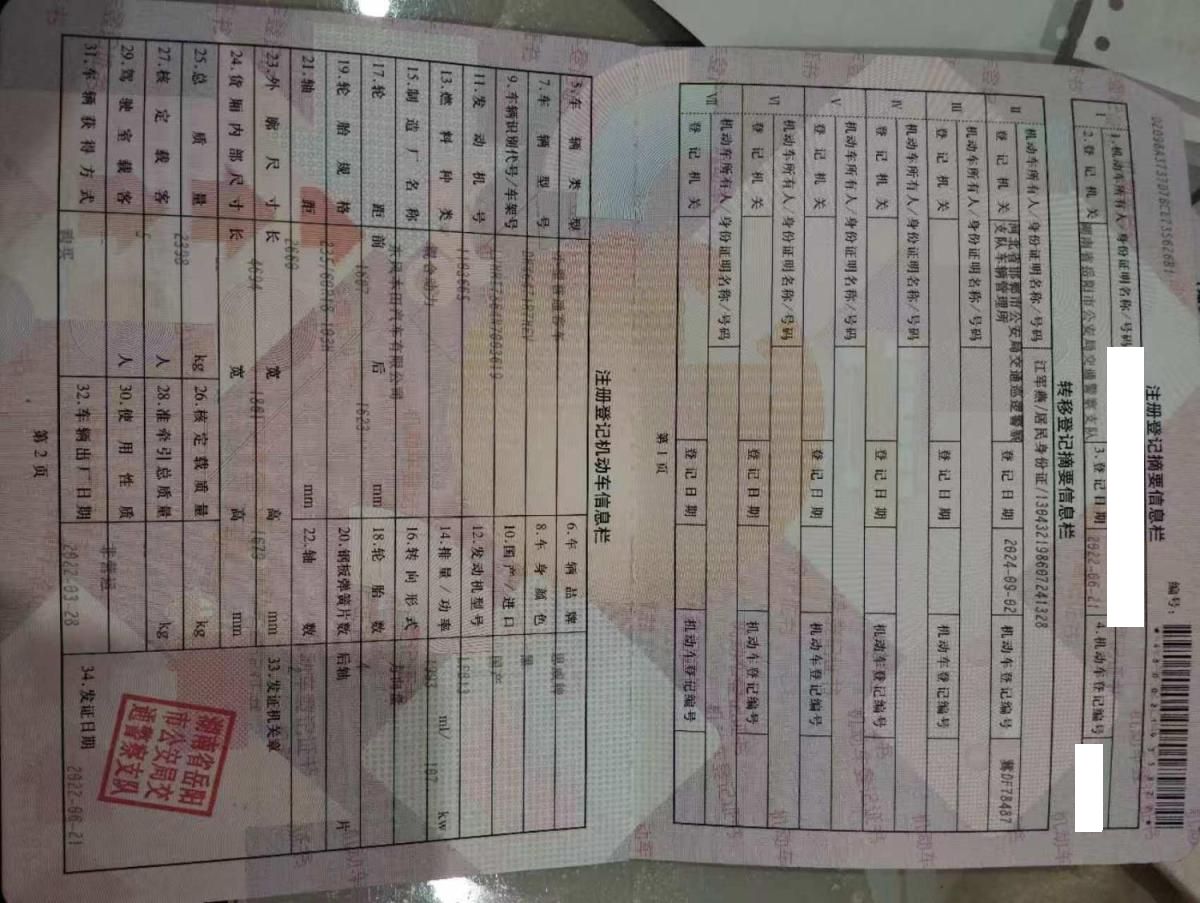 注册登记摘要信息栏
编号:
I
1.机动车所有人/身份证明名称/号码
2.登记机关 湖南省岳阳市公安局交通警察支队 3.登记日期 2022-06-21 4.机动车登记编号
转移登记摘要信息栏
II
机动车所有人/身份证明名称/号码 江军燕/居民身份证/130432198607241328
登记机关 河北省邯郸市公安局交通巡逻警察支队车辆管理所 登记日期 2024-09-02 机动车登记编号 冀DF78487
III
机动车所有人/身份证明名称/号码
登记机关 登记日期 机动车登记编号
IV
机动车所有人/身份证明名称/号码
登记机关 登记日期 机动车登记编号
V
机动车所有人/身份证明名称/号码
登记机关 登记日期 机动车登记编号
VI
机动车所有人/身份证明名称/号码
登记机关 登记日期 机动车登记编号
VII
机动车所有人/身份证明名称/号码
登记机关 登记日期 机动车登记编号
第1页
注册登记机动车信息栏
5.车辆类型 6.车辆品牌
7.车辆型号 8.车身颜色
9.车辆识别代号/车架号 10.国产/进口 国产
11.发动机号 12.发动机型号
13.燃料种类 混合动力 14.排量/功率 ml/ 107 kw
15.制造厂名称 东风本田汽车有限公司 16.转向形式 方向盘
17.轮距 前 1607 后 1623 mm 18.轮胎数 4
19.轮胎规格 235/60R18 103H 20.钢板弹簧片数 后轴 片
21.轴距 2660 mm 22.轴数 2
23.外廓尺寸 长 4694 宽 1861 高 1679 mm
24.货厢内部尺寸 长 宽 高 mm
33.发证机关章
25.总质量 2398 kg 26.核定载质量 kg
27.核定载客 5 人 28.准牵引总质量 kg
29.驾驶室载客 人 30.使用性质 非营运
31.车辆获得方式 购买 32.车辆出厂日期 2022-03-28 34.发证日期 2022-06-21
湖南省岳阳
市公安局交
通警察支队
第2页